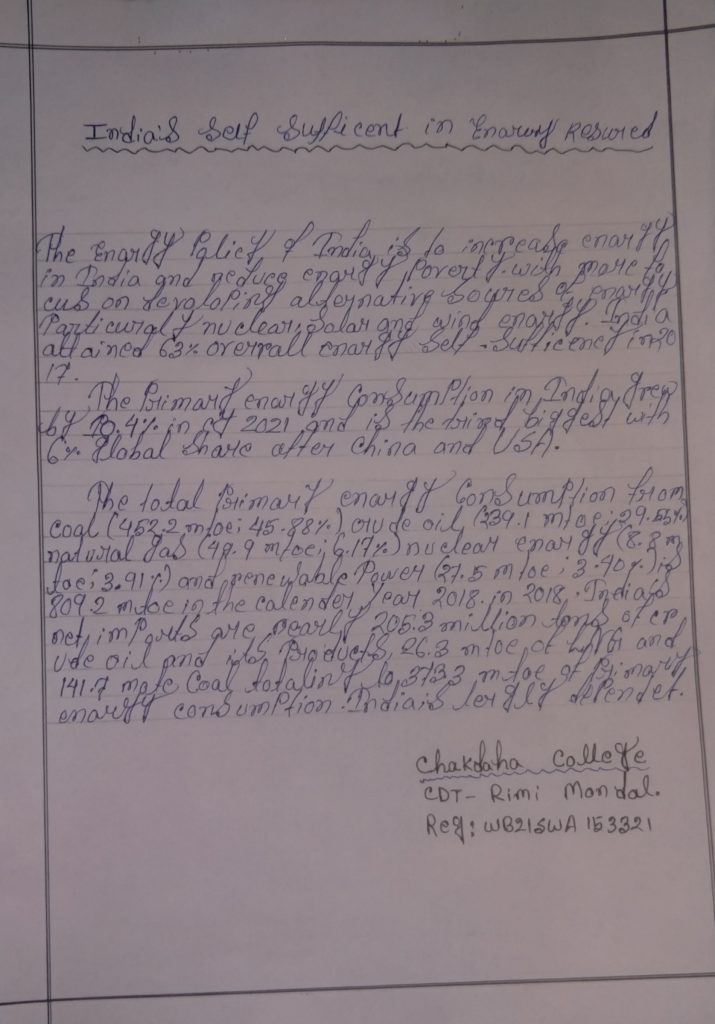 India's Self Sufficent in Enargy Resured
The Enargy Policy of India is to increase enargy
in India and reduce enargy Poverty. with more fo
cus on devaloping alternative sources of enargy
Particuraly nuclear, Solar and wind enargy. India
attained 63% overrall enargy Self-Sufficency in 20
17.
The Primary enargy Consumption in India grew
by 10.4% in CY 2021 and is the third biggest with
6% Global share after China and USA.
The total Primary enargy Consumption from
Coal (452.2 mtoe; 45.88%) crude oil (239.1 mtoe; 29.55%)
natural gas (49.9 mtoe; 6.17%) nuclear enargy (8.8 m
toe; 3.91%) and renewable Power (27.5 mtoe; 3.40%) is
809.2 mtoe in the calender year 2018. in 2018, India's
net imports are nearly 205.3 million tons of cr
ude oil and its Products, 26.3 mtoe of LNG and
141.7 mote Coal totaling to 373.3 mtoe of Primary
enargy consumption. India is lergly dependet.
Chakdaha College
CDT- Rimi Mondal.
Reg: WB21SWA 153321